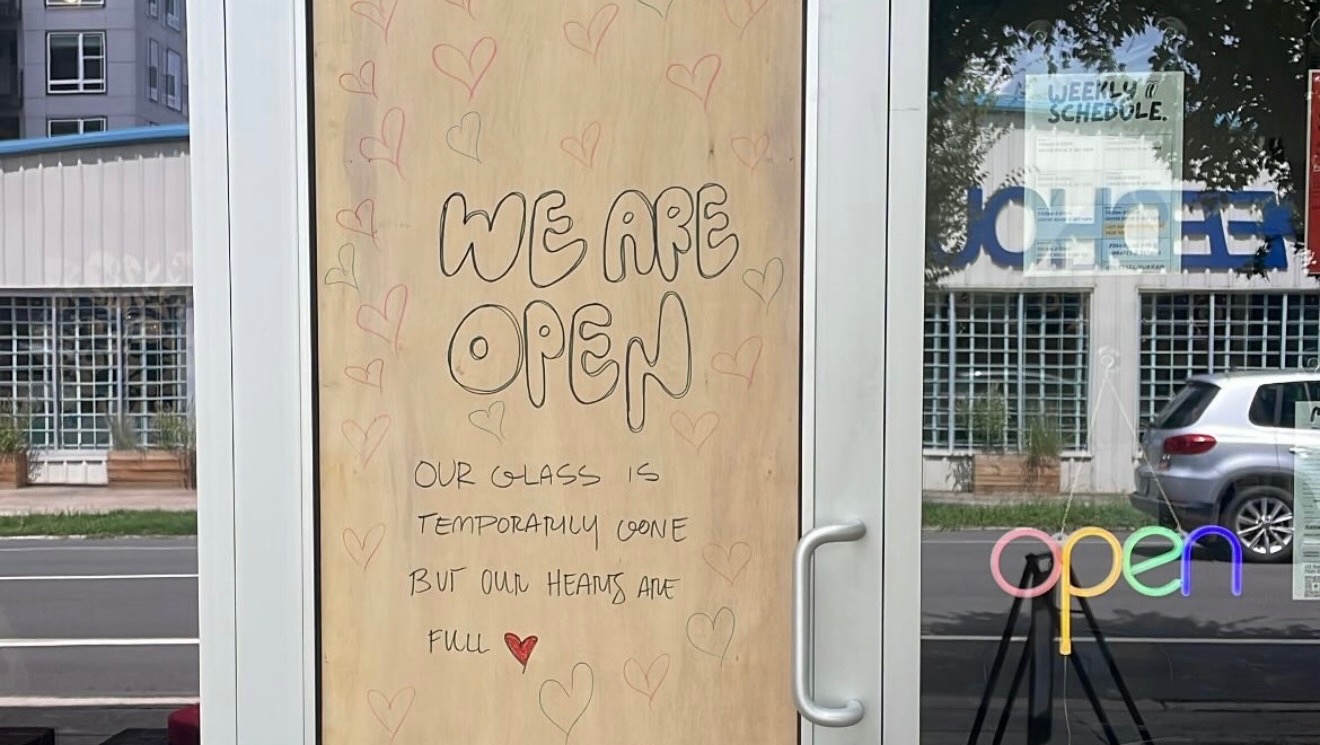 WE ARE
OPEN
OUR GLASS IS
TEMPORARILY GONE
BUT OUR HEARTS ARE
FULL
WEEKLY
SCHEDULE.
open